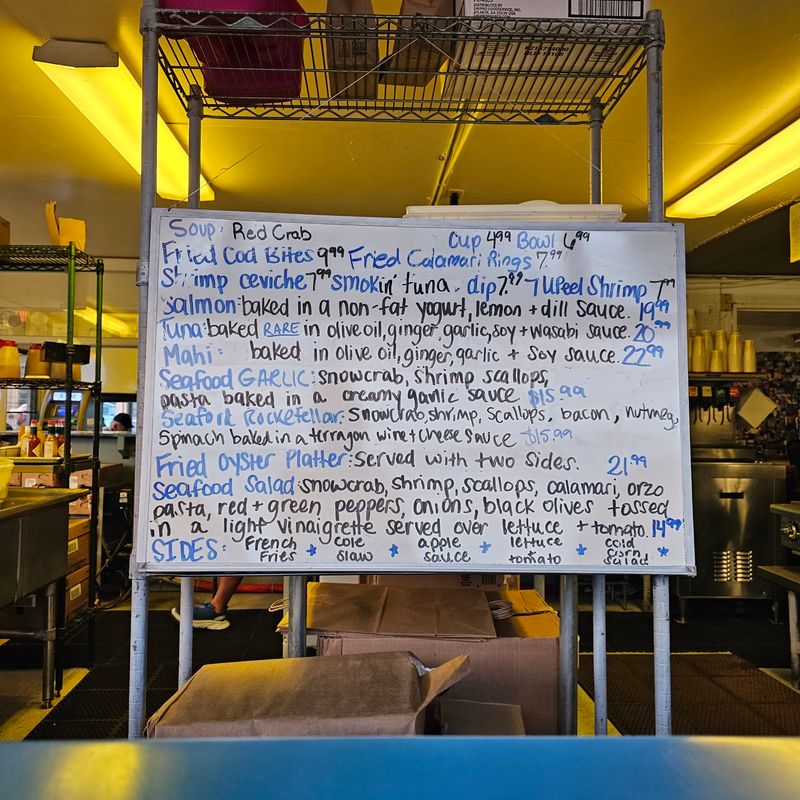 Soup: Red Crab Cup 4.99 Bowl 6.99
Fried Cod Bites 9.99 Fried Calamari Rings 7.99
Shrimp ceviche 7.99 smokin' tuna dip 7.99 7 U Peel Shrimp 7.99
Salmon: baked in a non-fat yogurt, lemon + dill sauce. 19.99
Tuna: baked RARE in olive oil, ginger, garlic, soy + wasabi sauce. 20.99
Mahi: baked in olive oil, ginger, garlic + soy sauce. 22.99
Seafood GARLIC: snowcrab, shrimp scallops,
pasta baked in a creamy garlic sauce $15.99
Seafood Rockefellar: Snowcrab, shrimp, scallops, bacon, nutmeg,
Spinach baked in a terragon wine + cheese sauce $15.99
Fried Oyster Platter: served with two sides. 21.99
Seafood Salad: snowcrab, shrimp, scallops, calamari, orzo
pasta, red + green peppers, onions, black olives tossed
in a light vinaigrette served over lettuce + tomato. 14.99
SIDES: French Fries * cole slaw * apple sauce * lettuce tomato * cold corn salad *